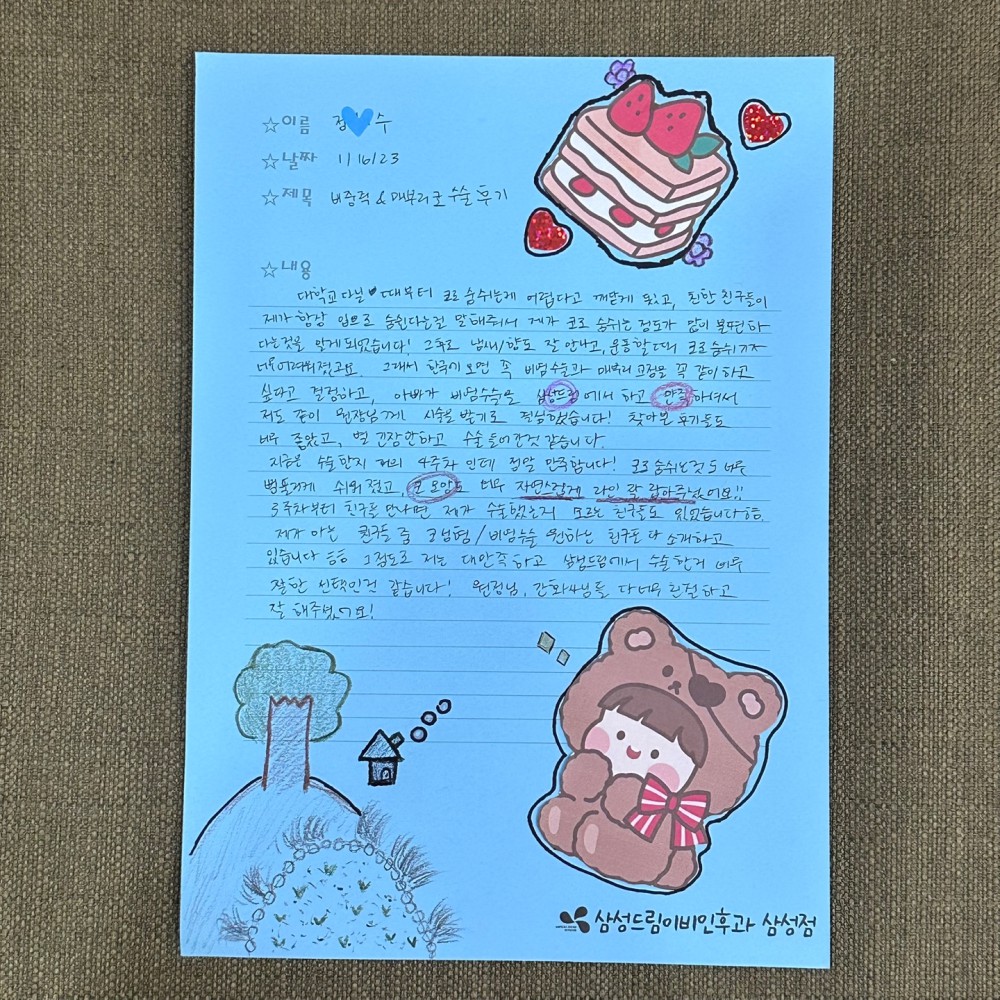 ☆이름 정 수
☆날짜 1/16/23
☆제목 비중격 & 매부리코 수술 후기
☆내용
대학교 다닐 ♥ 때부터 코로 숨쉬는게 어렵다고 깨닫게 됬고, 친한 친구들이
제가 항상 입으로 숨쉰다는걸 말해줘서 제가 코로 숨쉬는 정도가 많이 불편하
다는것을 알게 되었습니다! 그후로 냄새/향도 잘 안나고, 운동할때 코로 숨쉬기가
너무 어려워졌고요. 그래서 한국에 오면 꼭 비염수술과 매부리 교정을 꼭 같이 하고
싶다고 결정하고, 아빠가 비염수술을 삼성드림에서 하고 만족하셔서
저도 같이 원장님께 시술을 받기로 결심했습니다! 찾아본 후기들도
너무 좋았고, 별 긴장안하고 수술 들어간것 같습니다.
지금은 수술한지 거의 4주차 인데 정말 만족합니다! 코로 숨쉬는것도 너무
병돌기게 쉬워졌고, 코 모양도 너무 자연스럽게 라인 잘 잡아주셨어요!!
3주차부터 친구를 만나면 제가 수술했는지 모르는 친구들도 있었습니다ㅎㅎ.
제가 아는 친구들 중 코성형/비염수술 원하는 친구도 다 소개하고
있습니다 ㅎㅎ 그정도로 저는 대만족하고 삼성드림에서 수술한거 너무
잘한 선택인것 같습니다! 원장님, 간호사님들 다 너무 친절하고
잘 해주셨어요!
삼성드림이비인후과 삼성점